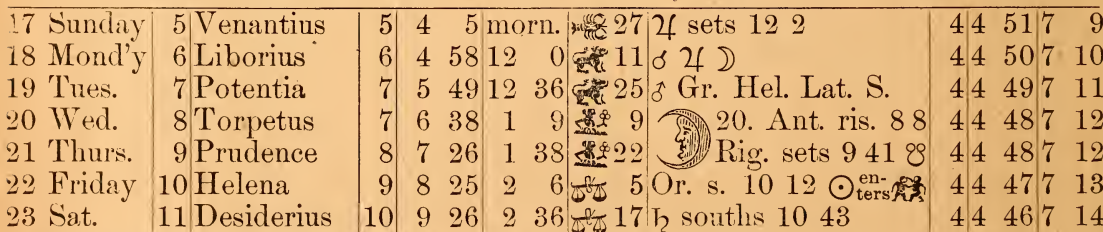 17 Sunday 5 Venantius 5 4 5 morn. 27 ♃ sets 12 2 4 4 51 7 9
18 Mond'y 6 Liborius 6 4 58 12 0 11 ☌ ♃ ☽ 4 4 50 7 10
19 Tues. 7 Potentia 7 5 49 12 36 25 ♂ Gr. Hel. Lat. S. 4 4 49 7 11
20 Wed. 8 Torpetus 7 6 38 1 9 9 20. Ant. ris. 8 8 4 4 48 7 12
21 Thurs. 9 Prudence 8 7 26 1 38 22 Rig. sets 9 41 ☋ 4 4 48 7 12
22 Friday 10 Helena 9 8 25 2 6 ♎ 5 Or. s. 10 12 ☉ enters ♊ 4 4 47 7 13
23 Sat. 11 Desiderius 10 9 26 2 36 ♎ 17 ♄ souths 10 43 4 4 46 7 14